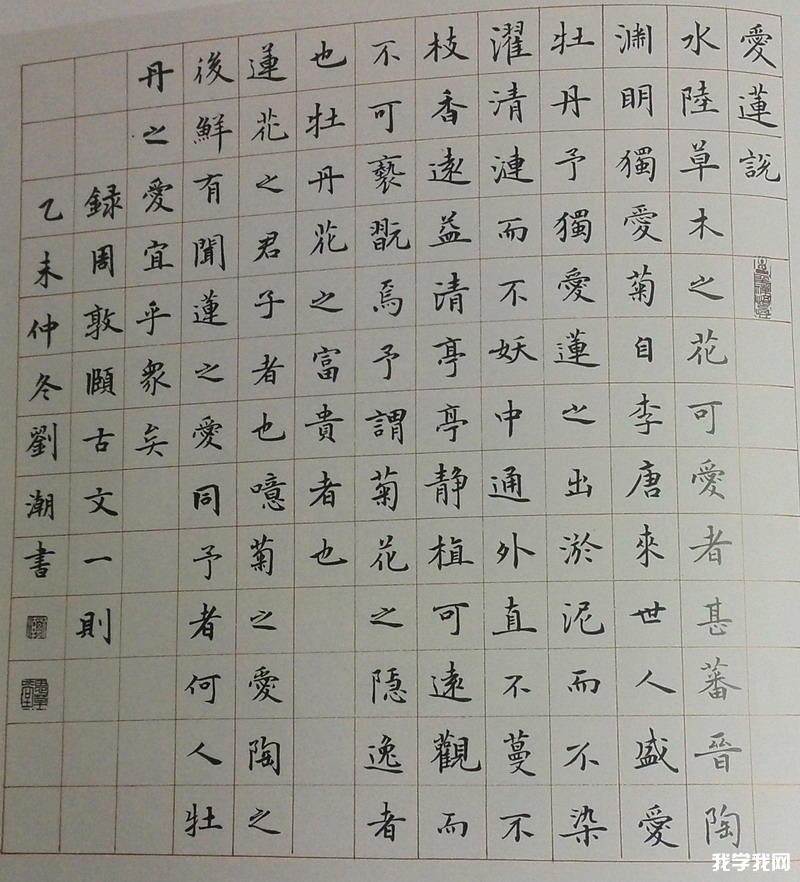 愛蓮説
水陸草木之花可愛者甚蕃晉陶
渊明獨愛菊自李唐來世人盛愛
牡丹予獨愛蓮之出淤泥而不染
濯清漣而不妖中通外直不蔓不
枝香遠益清亭亭静植可遠觀而
不可褻翫焉予謂菊花之隱逸者
也牡丹花之富貴者也
蓮花之君子者也噫菊之愛陶之
後鮮有聞蓮之愛同予者何人牡
丹之愛宜乎衆矣
録周敦頤古文一則
乙未仲冬劉潮書
我学我网